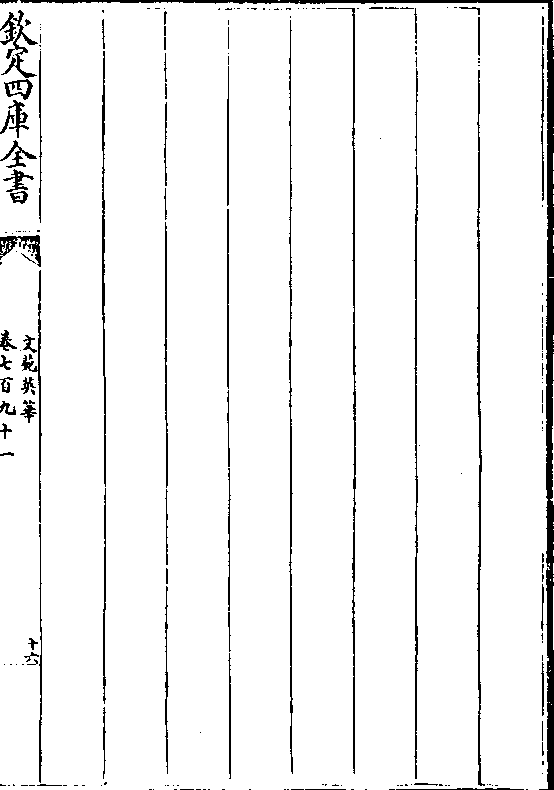 欽定四庫全書
文苑英華
卷七百九十一
十六